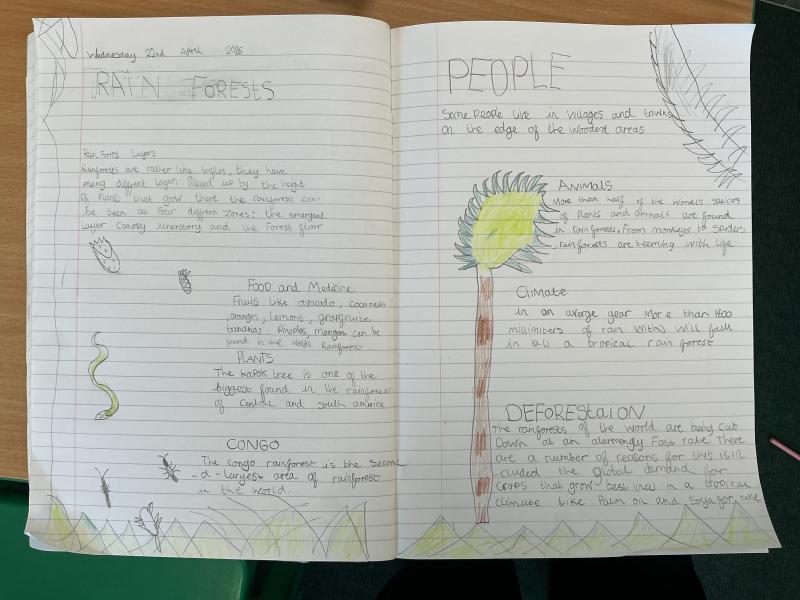 Wednesday 22nd April 2026
RAIN FORESTS
Rain Forests Layers
Rainforests are rather like triffles, they have
many diffrent layers. Divied up by the height
of Plants that grow there the rainforests can
be seen as four diffrent zones: the emergent
Layer Canopy unerstory and the Forest floor
FOOD and Medicine
Fruits like avocado, coconuts
,oranges, Lemons, grapfruite
bananas, Pinaples, mangos can be
found in the worlds Rainforest
PLANTS
The kapok tree is one of the
biggest found in the rainforests
of Central and south america
CONGO
The congo rainforest is the Secon
-d-largest area of rainforest
in the world.
PEOPLE
Some People live in villages and towns
on the edge of the wooded areas
ANIMALS
More than half of the World's species
of Plants and animals are found
in rainforests. From monkeys to spiders
,rainforests are teeming with life
Climate
in an avarge year More than 1800
millimiters of rain will fall
in a tropical rain forest
DEFOREStaiON
The rainforests of the world are being cut
Down at an alarmengy Fast rate There
are a number of reasons for this is in
cluded the global demand for
Crops that grow best in a tropical
climate like Palm oil and Soya for